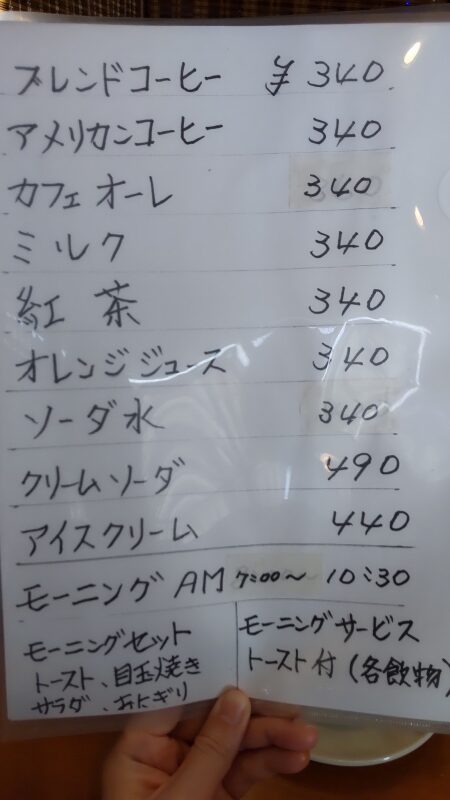 ブレンドコーヒー ¥340
アメリカンコーヒー 340
カフェオーレ 340
ミルク 340
紅茶 340
オレンジジュース 340
ソーダ水 340
クリームソーダ 490
アイスクリーム 440
モーニング AM 7:00〜 10:30
モーニングセット
トースト、目玉焼き
サラダ、おにぎり
モーニングサービス
トースト付(各飲物)